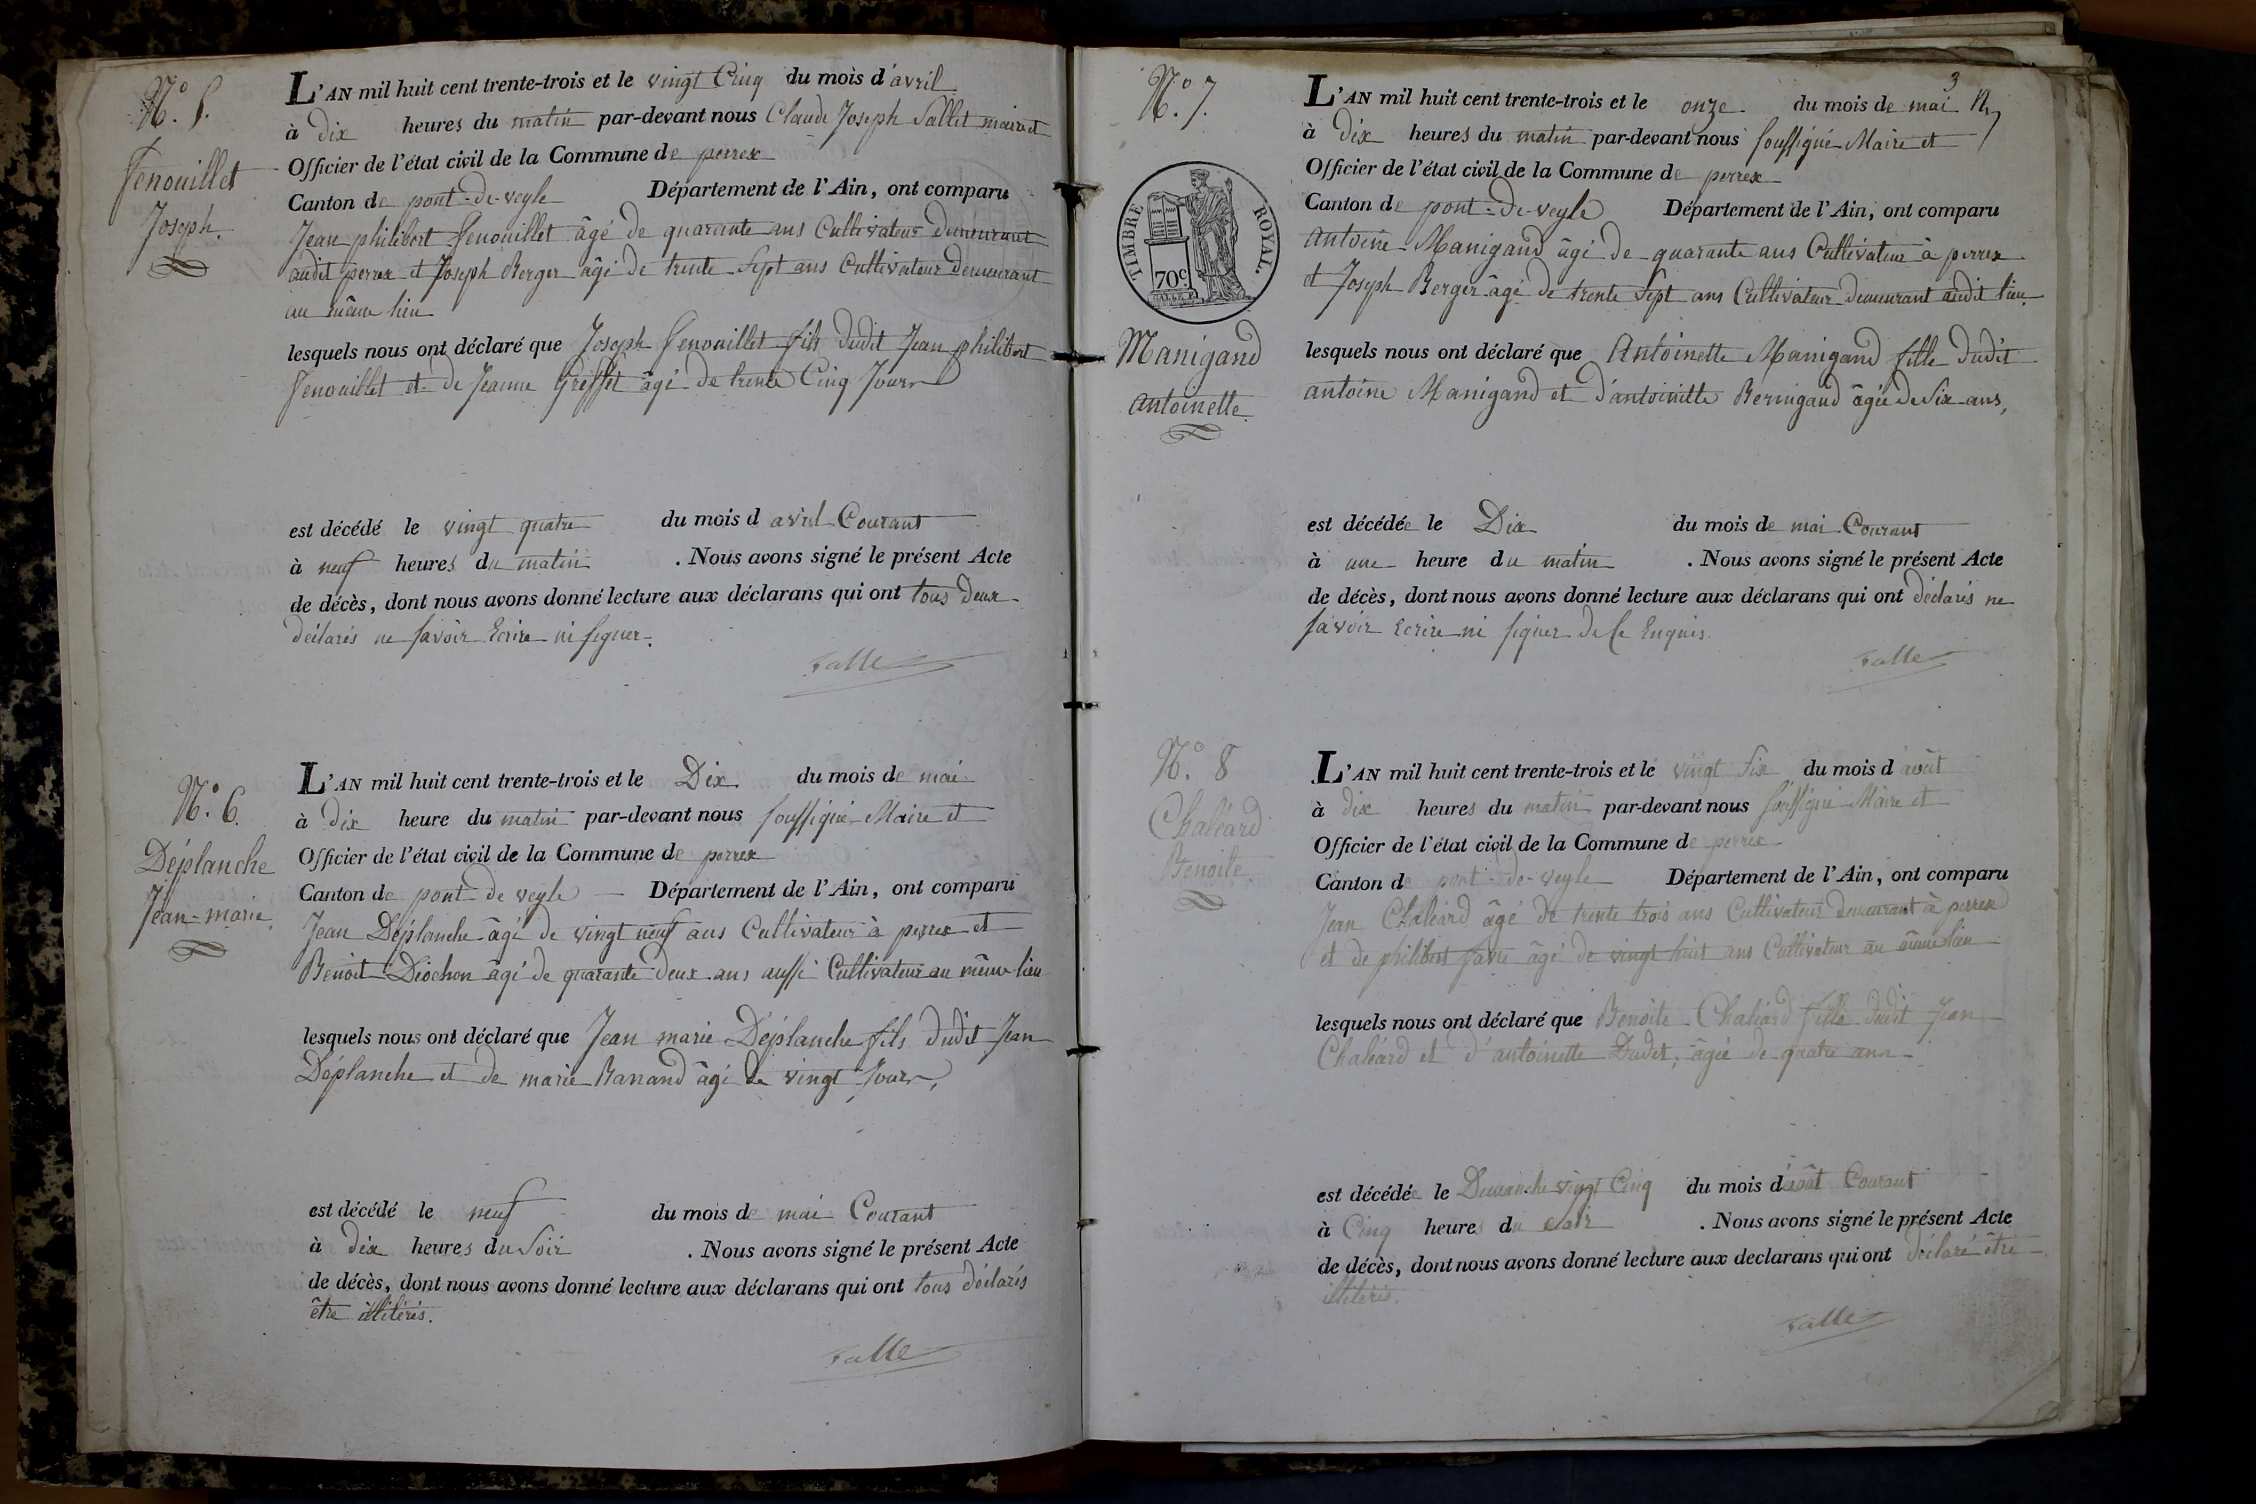 N.° 5.
Fenouillet
Joseph.
L'AN mil huit cent trente-trois et le vingt Cinq du mois d'avril
à dix heures du matin par-devant nous Claude Joseph Sallet maire et
Officier de l'état civil de la Commune de perrex
Canton de pont-de-veyle Département de l'Ain, ont comparu
Jean philibert Fenouillet âgé de quarante ans Cultivateur demeurant
audit perrex et Joseph Berger âgé de trente Sept ans Cultivateur demeurant
au même lieu
lesquels nous ont déclaré que Joseph Fenouillet fils dudit Jean philibert
Fenouillet et de Jeanne Greffet âgé de trente Cinq Jours
est décédé le vingt quatre du mois d avril Courant
à neuf heures du matin . Nous avons signé le présent Acte
de décès, dont nous avons donné lecture aux déclarans qui ont tous deux
déclarés ne savoir Ecrire ni signer.
N.° 6.
Déplanche
Jean-marie.
L'AN mil huit cent trente-trois et le Dix du mois de mai
à dix heure du matin par-devant nous soussigné Maire et
Officier de l'état civil de la Commune de perrex
Canton de pont-de veyle Département de l'Ain, ont comparu
Jean Déplanche âgé de vingt neuf ans Cultivateur à perrex et
Benoit Diochon âgé de quarante deux ans aussi Cultivateur au même lieu
lesquels nous ont déclaré que Jean marie Déplanche fils dudit Jean
Déplanche et de marie Banand âgé de vingt Jours,
est décédé le neuf du mois de mai Courant
à dix heures du Soir . Nous avons signé le présent Acte
de décès, dont nous avons donné lecture aux déclarans qui ont tous déclarés
être illitérés.
3
N.° 7.
TIMBRE ROYAL.
70 c.
Manigand
antoinette
L'AN mil huit cent trente-trois et le onze du mois de mai
à dix heures du matin par-devant nous soussigné Maire et
Officier de l'état civil de la Commune de perrex
Canton de pont-de-veyle Département de l'Ain, ont comparu
antoine Manigand âgé de quarante ans Cultivateur à perrex
et Joseph Berger âgé de trente Sept ans Cultivateur demeurant audit lieu
lesquels nous ont déclaré que Antoinette Manigand fille dudit
antoine Manigand et d'antoinette Beringaud âgée de Six ans,
est décédée le Dix du mois de mai Courant
à une heure du matin . Nous avons signé le présent Acte
de décès, dont nous avons donné lecture aux déclarans qui ont déclarés ne
savoir Ecrire ni signer de Ce Enquis.
N.° 8
Chaléard
Benoite
L'AN mil huit cent trente-trois et le vingt Six du mois d août
à dix heures du matin par-devant nous soussigné Maire et
Officier de l'état civil de la Commune de perrex
Canton de pont-de-veyle Département de l'Ain, ont comparu
Jean Chaléard âgé de trente trois ans Cultivateur demeurant à perrex
et de philibert favre âgé de vingt huit ans Cultivateur au même lieu
lesquels nous ont déclaré que Benoite Chaléard fille dudit Jean
Chaléard et d'antoinette Dudet, âgée de quatre ans
est décédée le Dimanche vingt Cinq du mois d'août Courant
à Cinq heures du soir . Nous avons signé le présent Acte
de décès, dont nous avons donné lecture aux declarans qui ont déclaré être
illitérés.